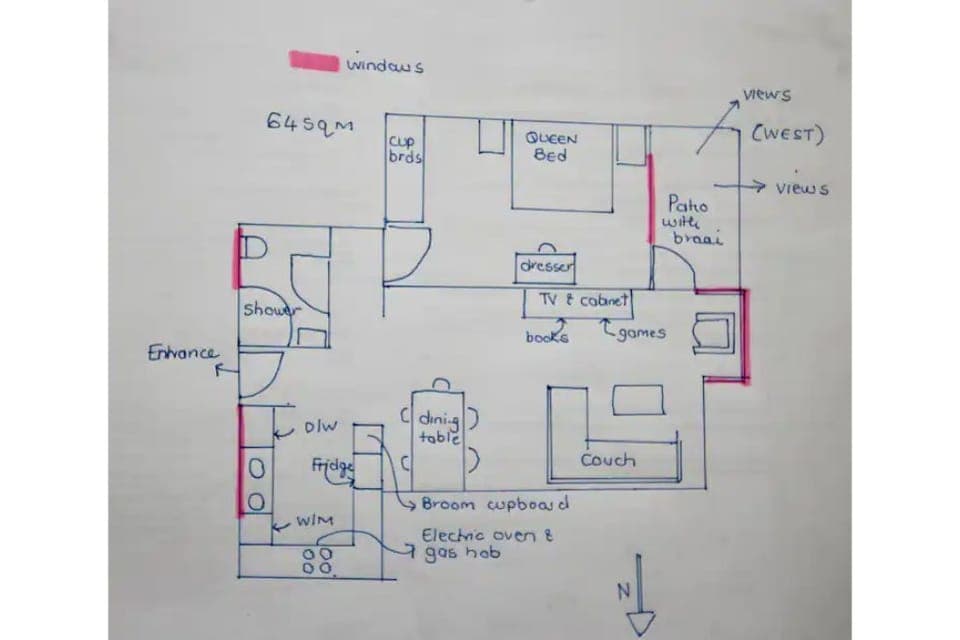 windows
64 SQM
views
(WEST)
views
cup
brds
QUEEN
Bed
Patio
with
braai
dresser
TV & cabinet
books
games
Shower
Entrance
D/W
dining
table
Couch
Fridge
Broom cupboard
W/M
Electric oven &
gas hob
N